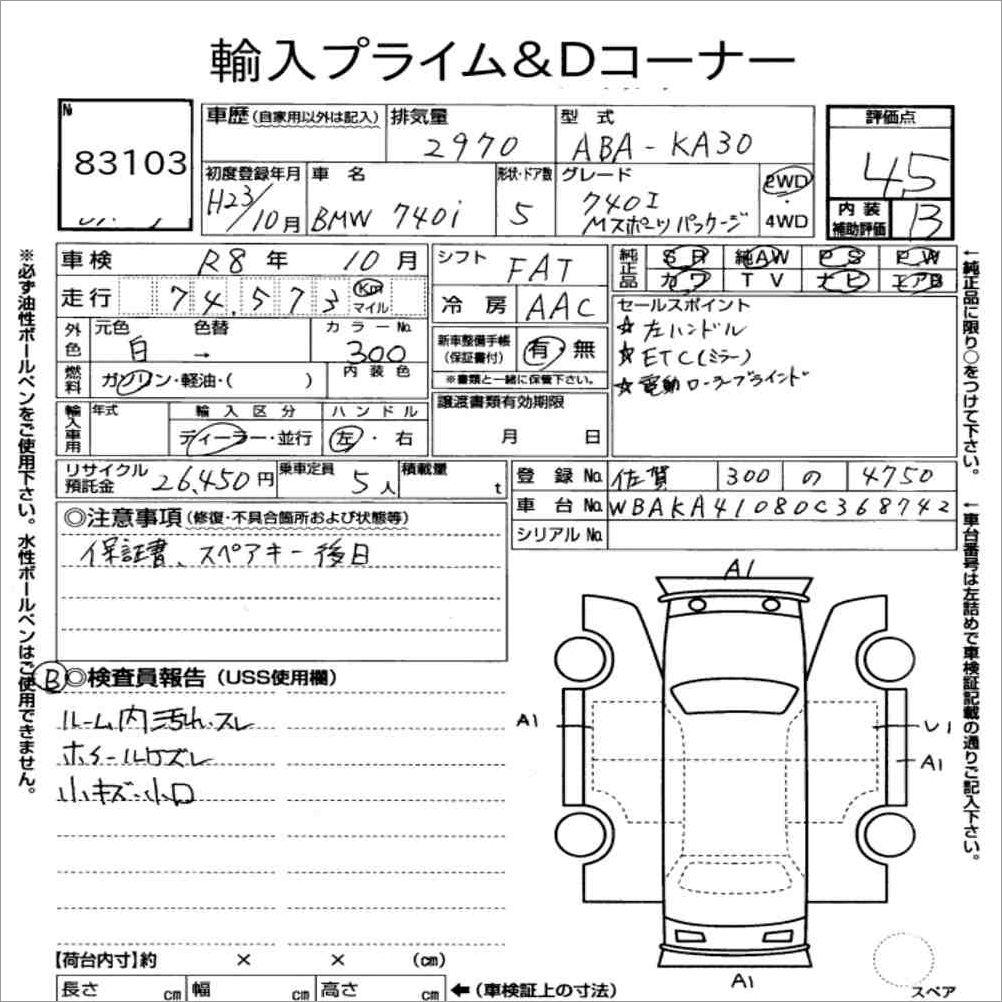 輸入プライム&Dコーナー
№
83103
車歴 (自家用以外は記入)
排気量
2970
型式
ABA-KA30
評価点
4.5
初度登録年月
H23/10月
車名
BMW 740i
形状・ドア数
5
グレード
740I
Mスポーツパッケージ
2WD
4WD
内装
補助評価
B
車検
R8年 10月
シフト
FAT
純正品
SR 純AW PS PW
カワ TV ナビ エアB
走行
74,573
Km
マイル
冷房
AAC
セールスポイント
☆左ハンドル
☆ETC(ミラー)
☆電動ローラーブラインド
外色
元色
白
→
色替
カラーNo.
300
新車整備手帳
(保証書付)
有・無
※書類と一緒に保管下さい。
燃料
ガソリン・軽油・( )
内装色
輸入車用
年式
輸入区分
ディーラー・並行
ハンドル
左・右
譲渡書類有効期限
月 日
リサイクル
預託金
26,450円
乗車定員
5人
積載量
t
登録No.
佐賀 300 の 4750
車台No.
WBAKA41080C368742
シリアルNo.
◎注意事項 (修復・不具合箇所および状態等)
保証書、スペアキー後日
B
◎検査員報告 (USS使用欄)
ルーム内汚れ・スレ
ホイールカズレ
小キズ・小凹
A1
A1
U1
A1
A1
スペア
【荷台内寸】約 × × (cm)
長さ cm 幅 cm 高さ cm
←(車検証上の寸法)
※必ず油性ボールペンをご使用下さい。水性ボールペンはご使用できません。
←純正品に限り○をつけて下さい。
←車台番号は左詰めで車検証記載の通りご記入下さい。